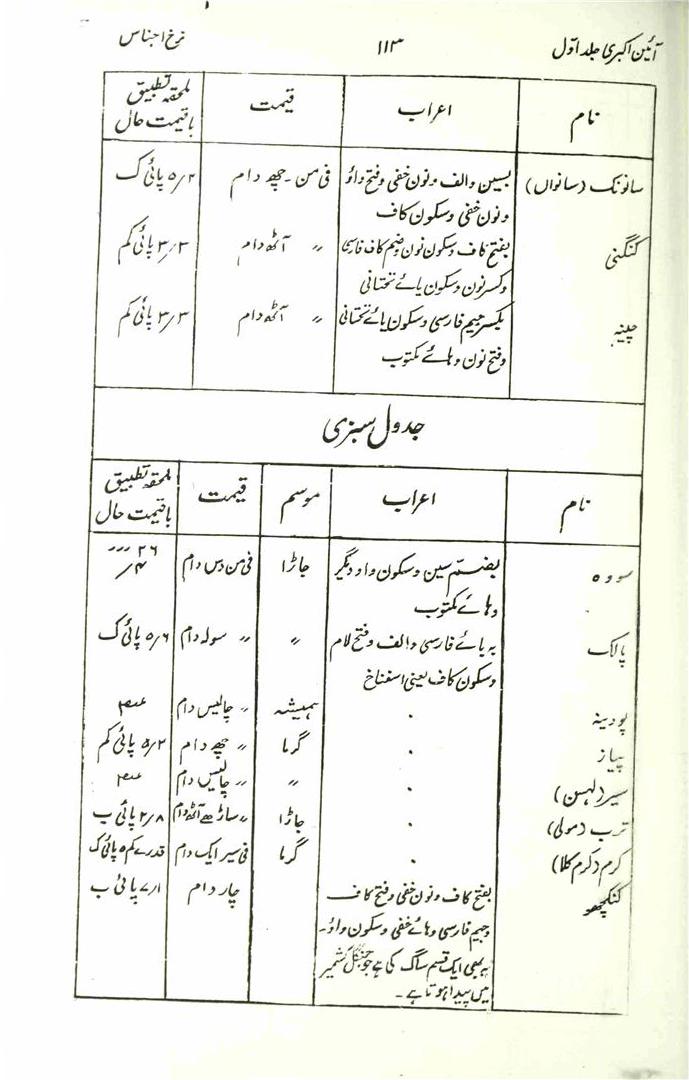 آئین اکبری جلد اوّل ۱۱۳ نرخ اجناس
نام اعراب قیمت ملحقہ تطبیق
باقیمت حال
سانونک (سانواں) بسین والف ونون خفی وفتح داؤ فی من ۔ چھ دام ۵/۲ پائی ک
ونون خفی وسکون کاف
کنگنی بفتح کاف وسکون نون وضم کاف فارسی 〃 آٹھ دام ۳/۳ پائی کم
وکسر نون وسکون یائے تحتانی
چینہ بکسر جیم فارسی وسکون یائے تحتانی 〃 آٹھ دام ۳/۳ پائی کم
وفتح نون وہائے مکتوب
جدول سبزی
نام اعراب موسم قیمت ملحقہ تطبیق
باقیمت حال
سووہ بضم سین وسکون واو دیگر جاڑا فی من دس دام ۲۶
وہائے مکتوب ۴/
پالک بہ بائے فارسی والف وفتح لام 〃 〃 سولہ دام ۵/۶ پائی ک
وسکون کاف یعنی اسفناخ
پودینہ ۰ ہمیشہ 〃 چالیس دام
پیاز ۰ گرما 〃 چھ دام ۵/۲ پائی کم
سیر (لہسن) ۰ 〃 〃 چالیس دام
ترب (مولی) ۰ جاڑا 〃 ساڑھے آٹھ دام ۲/۸ پائی ب
کرم (کرم کلا) ۰ گرما فی سیر ایک دام قدرے کم ۵ پائی ک
کنکچھو بفتح کاف ونون خفی وفتح کاف چار دام ۱/۷ پائی ب
وجیم فارسی وہائے خفی وسکون واؤ۔
یہ بھی ایک قسم ساگ کی ہے جو جنگل کشمیر
میں پیدا ہوتا ہے۔